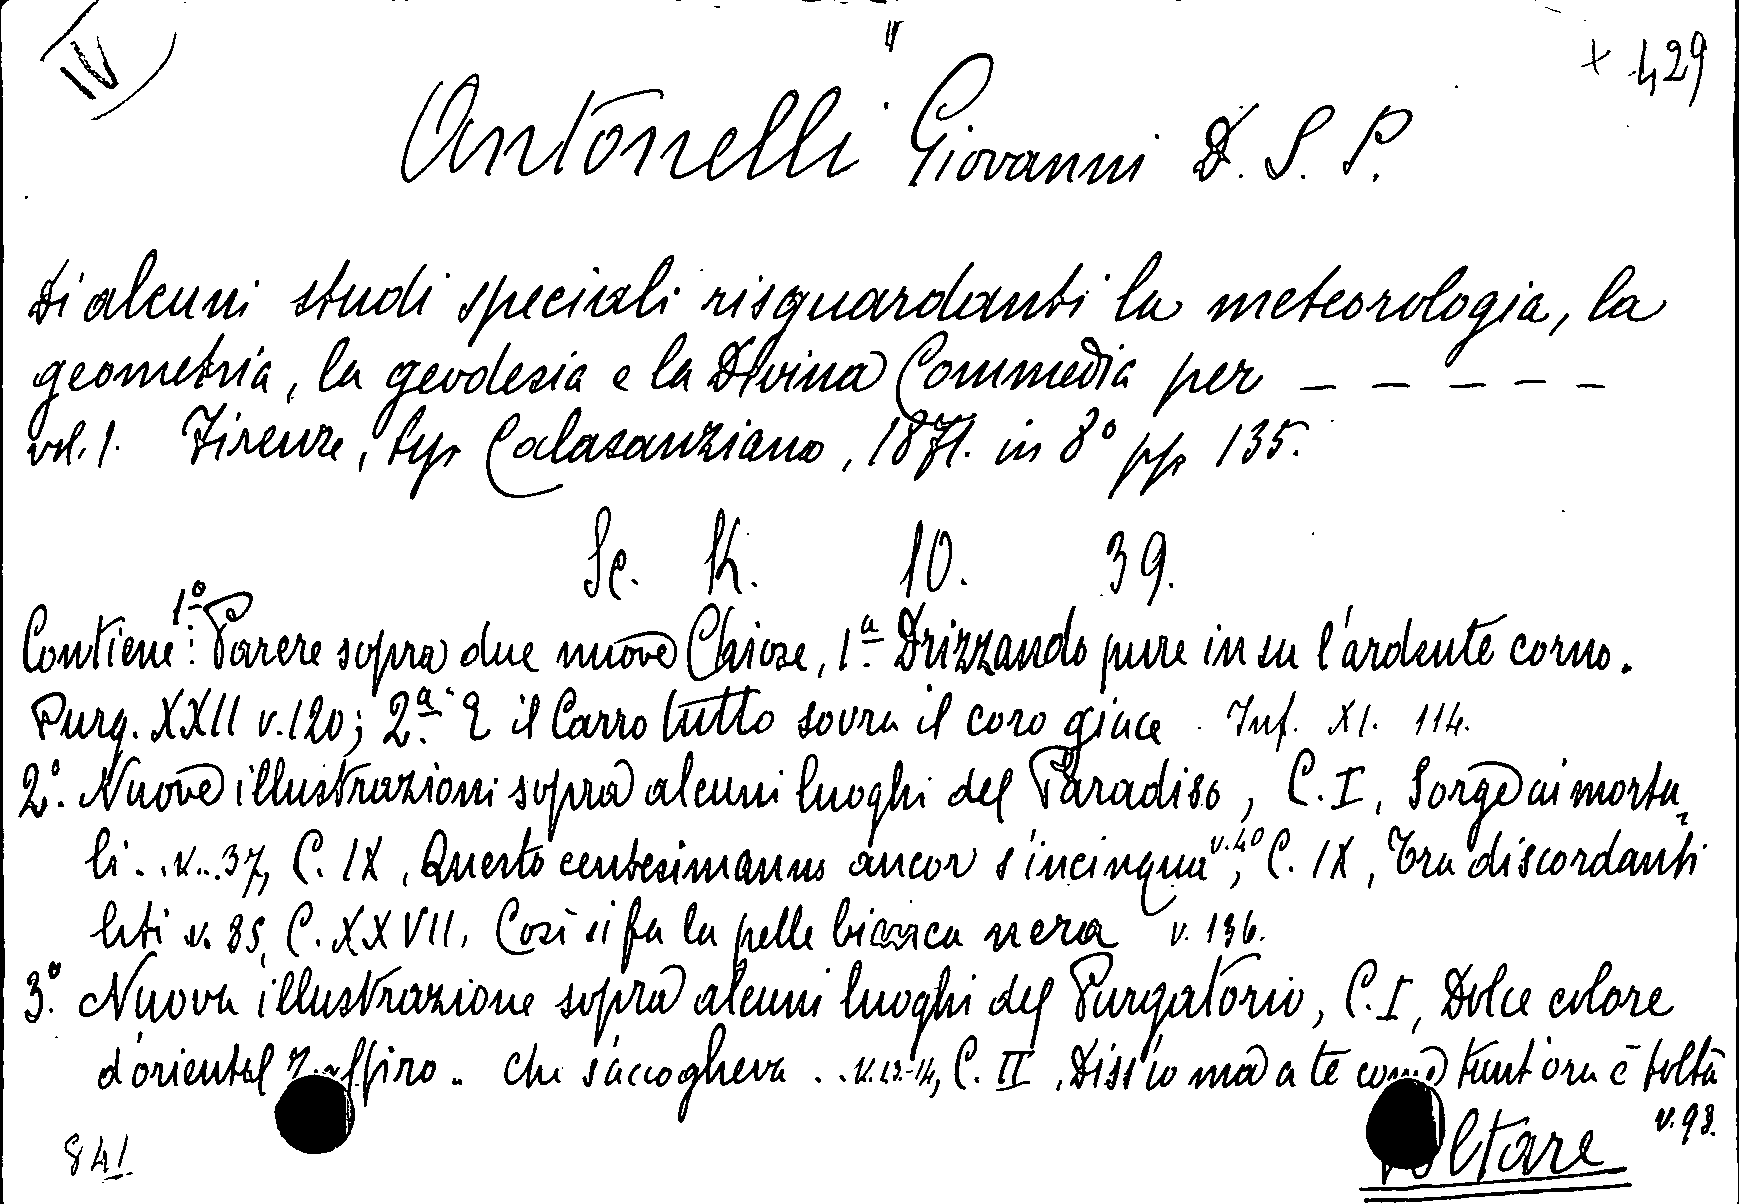 IV
+ 429
Antonelli Giovanni D. S. P.
Di alcuni studi speciali risguardanti la meteorologia, la
geometria, la geodesia e la Divina Commedia per — — — — —
vol. 1. Firenze, typ Calasanziano, 1871. in 8° pp 135.
Sc. K. 10. 39.
Contiene: 1° Parere sopra due nuove Chiose, 1ª Drizzando pure in su l'ardente corno.
Purg. XXII v. 120; 2ª E il Carro tutto sovra il coro giace. Inf. XI. 114.
2°. Nuove illustrazioni sopra alcuni luoghi del Paradiso, C. I, Sorge ai morta-
li . . v. 37, C. IX, Questo centesimanno ancor s'incinqua v. 40, C. IX, Tra discordanti
liti v. 85, C. XXVII, Così si fa la pelle bianca nera v. 136.
3°. Nuova illustrazione sopra alcuni luoghi del Purgatorio, C. I, Dolce colore
d'oriental Zaffiro .. che s'accoglieva . . v. 13-14, C. II, Diss'io ma a te come tant'ora è tolta
v. 98.
841
Voltare